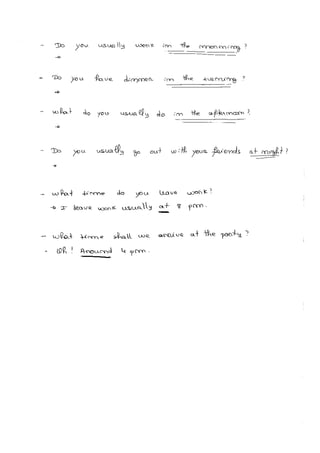 - Do you usually work in the morning ?
→
- Do you have dinner in the evening ?
→
- What do you usually do in the afternoon ?
→
- Do you usually go out with your friends at night ?
→
- What time do you leave work ?
→ I leave work usually at 8 pm.
- What time shall we arrive at the party ?
- Oh ! Around 4 pm.